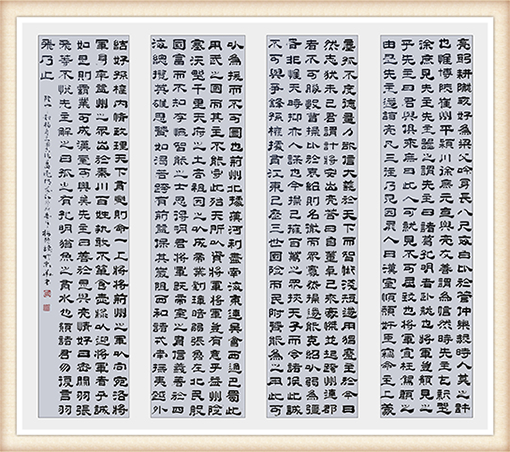 亮躬耕隴畝好為梁父吟身長八尺每自比於管仲樂毅時人莫之許
也惟博陵崔州平潁川徐庶元直與亮友善謂為信然時先主屯新野
徐庶見先主先主器之謂先主曰諸葛孔明者臥龍也將軍豈願見之
乎先主曰君與俱來庶曰此人可就見不可屈致也將軍宜枉駕顧之
由是先主遂詣亮凡三往乃見因屏人曰漢室傾頹奸臣竊命主上蒙
塵孤不度德量力欲信大義於天下而智術淺短遂用猖蹶至於今日
然志猶未已君謂計將安出亮答曰自董卓已來豪傑並起跨州連郡
者不可勝數曹操比於袁紹則名微而眾寡然操遂能克紹以弱為強
者非惟天時抑亦人謀也今操已擁百萬之眾挾天子而令諸侯此誠
不可與爭鋒孫權據有江東已歷三世國險而民附賢能為之用此可
以為援而不可圖也荊州北據漢沔利盡南海東連吳會西通巴蜀此
用武之國而其主不能守此殆天所以資將軍將軍豈有意乎益州險
塞沃野千里天府之土高祖因之以成帝業劉璋暗弱張魯在北民殷
國富而不知存恤智能之士思得明君將軍既帝室之冑信義著於四
海總攬英雄思賢如渴若跨有荊益保其巖阻西和諸戎南撫夷越外
結好孫權內修政理天下有變則命一上將將荊州之軍以向宛洛將
軍身率益州之眾出於秦川百姓孰敢不簞食壺漿以迎將軍者乎誠
如是則霸業可成漢室可興矣先主曰善於是與亮情好日密關羽張
飛等不悅先主解之曰孤之有孔明猶魚之有水也願諸君勿復言羽
飛乃止